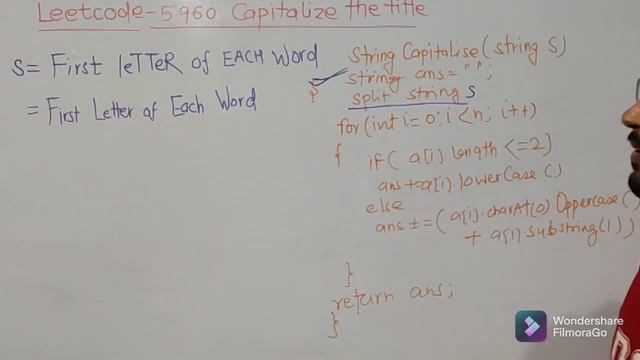 Leetcode-5960 Capitalize the title
S= First leTTeR of EACH Word
= First Letter of Each Word
String Capitalise(string S)
{ string ans=" ";
split string S
for(int i=0; i<n; i++)
{
if( a[i].length <=2)
ans+=a[i].lowerCase()
else
ans +=(a[i].charAt(0).Uppercase()
+ a[i].substring(1))
}
return ans;
}
Wondershare
FilmoraGo